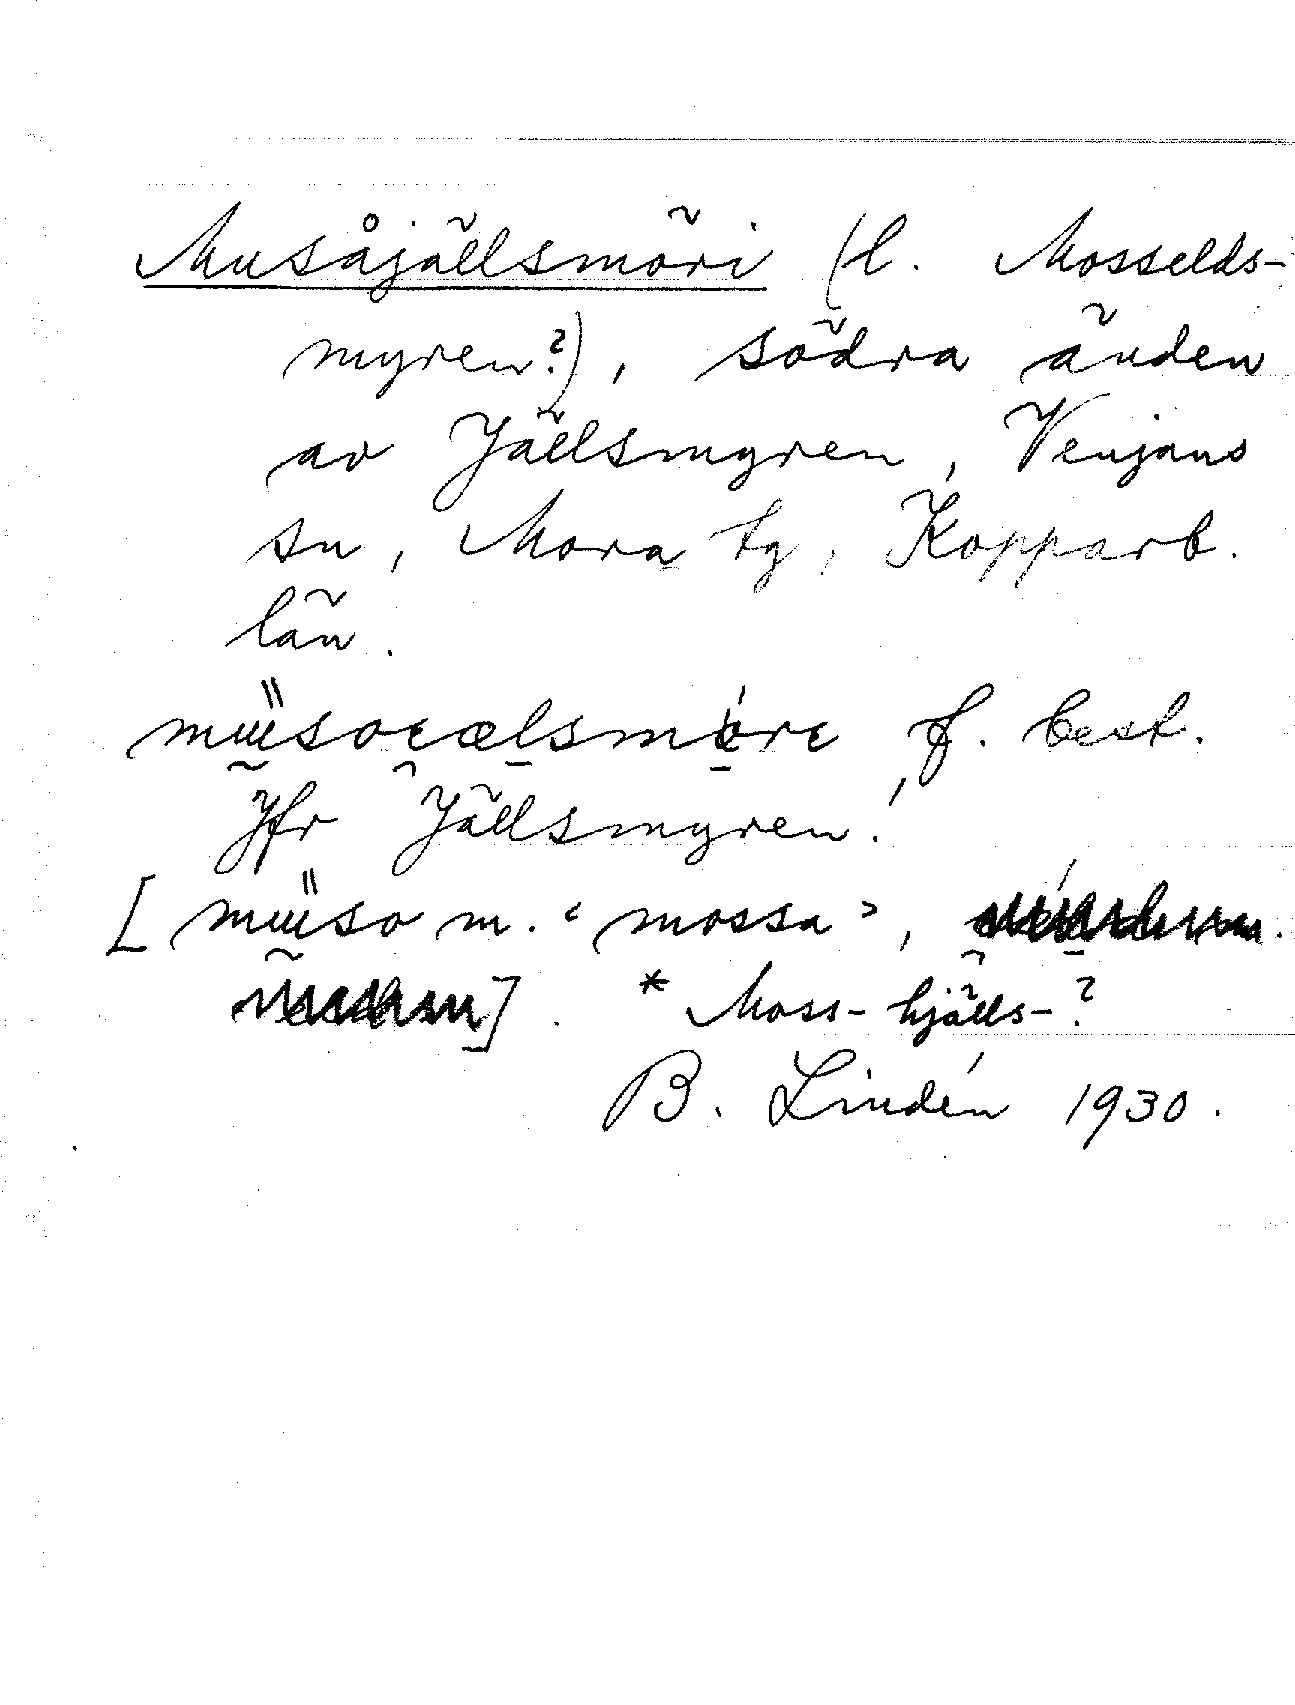 Musåjällsmöri (l. Mosselds-
myren?), södra änden
av Jällsmyren, Venjans
sn, Mora tg, Kopparb.
län.
f. best.
Jfr Jällsmyren!
[ m. ‹ mossa ›,
]. * Moss-hjälls-?
B. Lindén 1930.